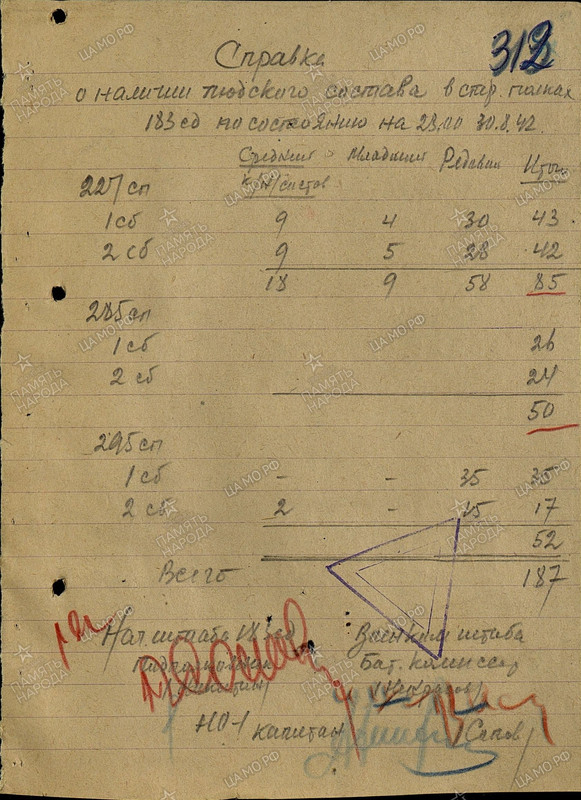 312
Справка
о наличии людского состава в стр. полках
183 сд по состоянию на 23.00 30.8.42.
Средний Младший Рядовой Итого
к/н/состав
227 сп
1 сб 9 4 30 43
2 сб 9 5 28 42
18 9 58 85
285 сп
1 сб 26
2 сб 24
50
295 сп
1 сб - - 35 35
2 сб 2 - 15 17
52
Всего 187
Нач. штаба 183 сд Военком штаба
Подполковник Бат. комиссар
(Некрасов)
НО-1 капитан (Сапов)
ПАМЯТЬ НАРОДА
ЦАМО.РФ